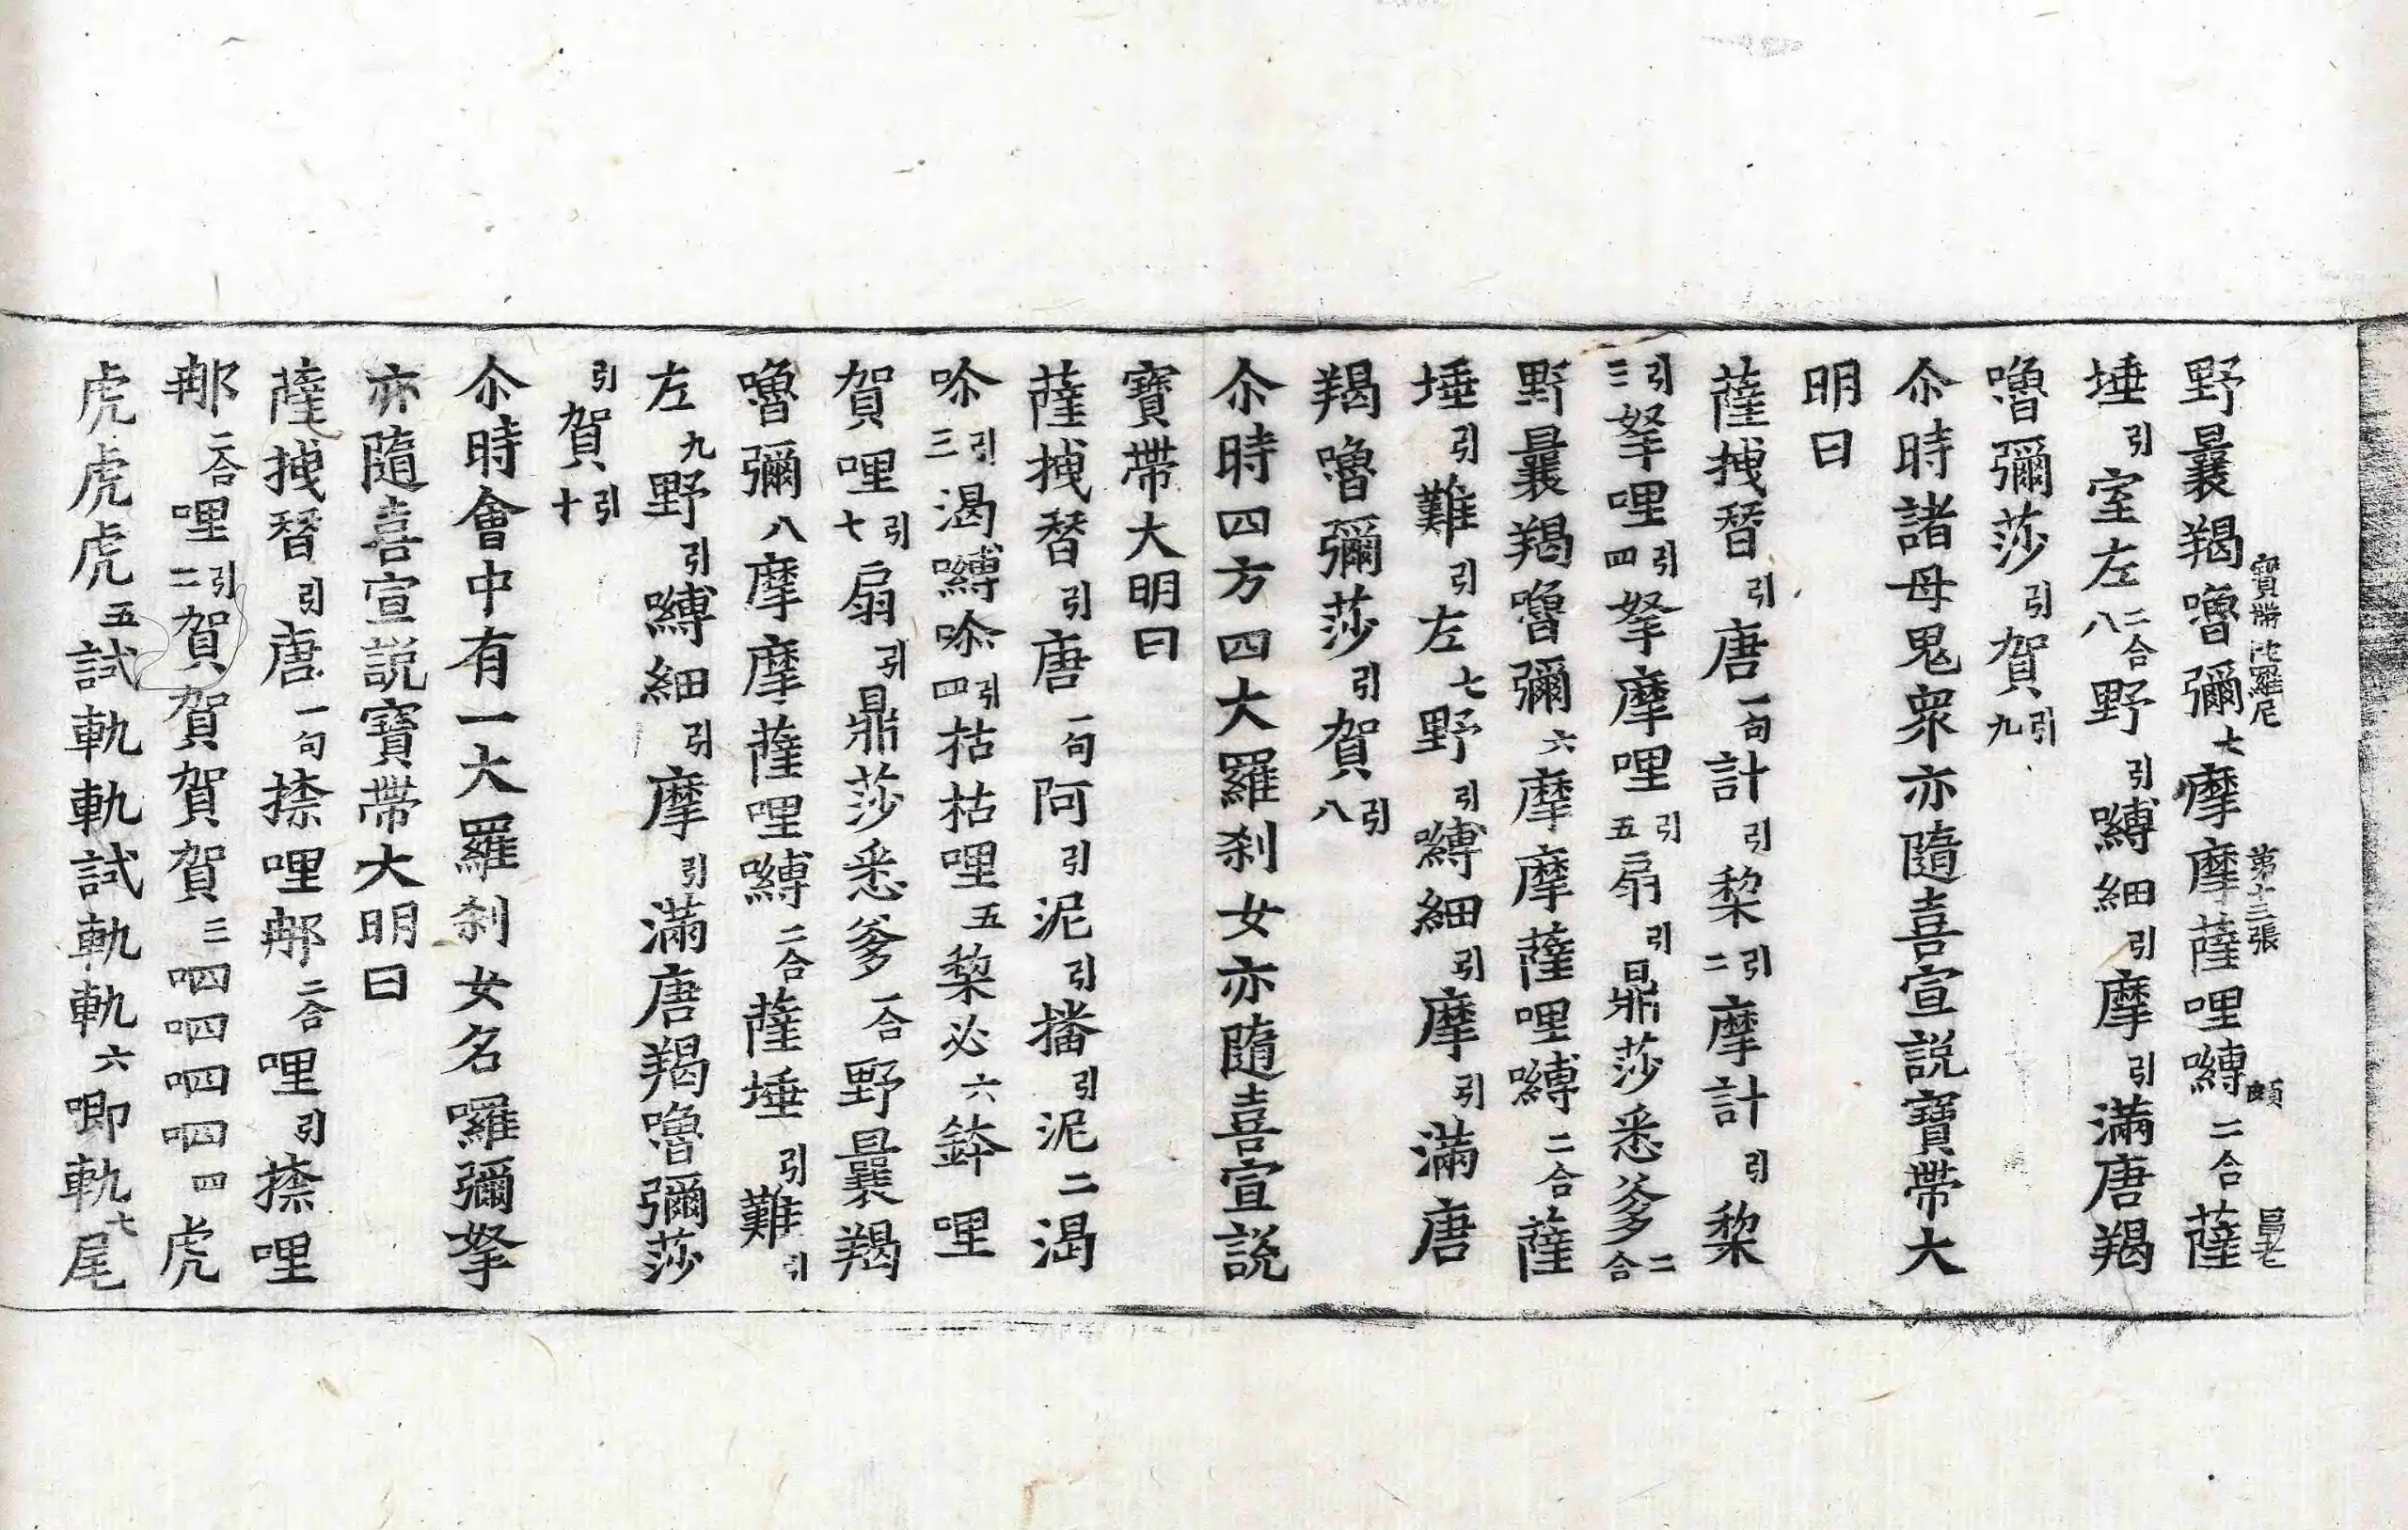 寶帶陁羅尼 第十三張 頗
野曩羯嚕彌六摩摩薩哩嚩二合薩
埵引室左二合八野引嚩細引摩引滿唐羯
嚕彌莎引賀引九
尒時諸母鬼衆亦隨喜宣説寶帶大
明曰
薩拽替引唐一句計引棃引二摩計引棃
引三拏哩引四拏摩哩引五扇引鼎莎悉爹二合
野曩羯嚕彌六摩摩薩哩嚩二合薩
埵引難引左七野引嚩細引摩引滿唐
羯嚕彌莎引賀引八
尒時四方四大羅刹女亦隨喜宣説
寶帶大明曰
薩拽替引唐一句阿引泥引播引泥二渴
唥引三渴嚩唥引四枯枯哩五棃必六鉢哩
賀哩引七扇引鼎莎悉爹二合野曩羯
嚕彌八摩摩薩哩嚩二合薩埵引難引
左九野引嚩細引摩引滿唐羯嚕彌莎
引賀引十
尒時會中有一大羅刹女名囉彌拏
亦隨喜宣説寶帶大明曰
薩拽替引唐一句捺哩那二合哩引捺哩
那二合哩引二賀賀賀賀三呬呬呬呬四虎
虎虎虎五試軌軌試軌軌六唧軌七尾